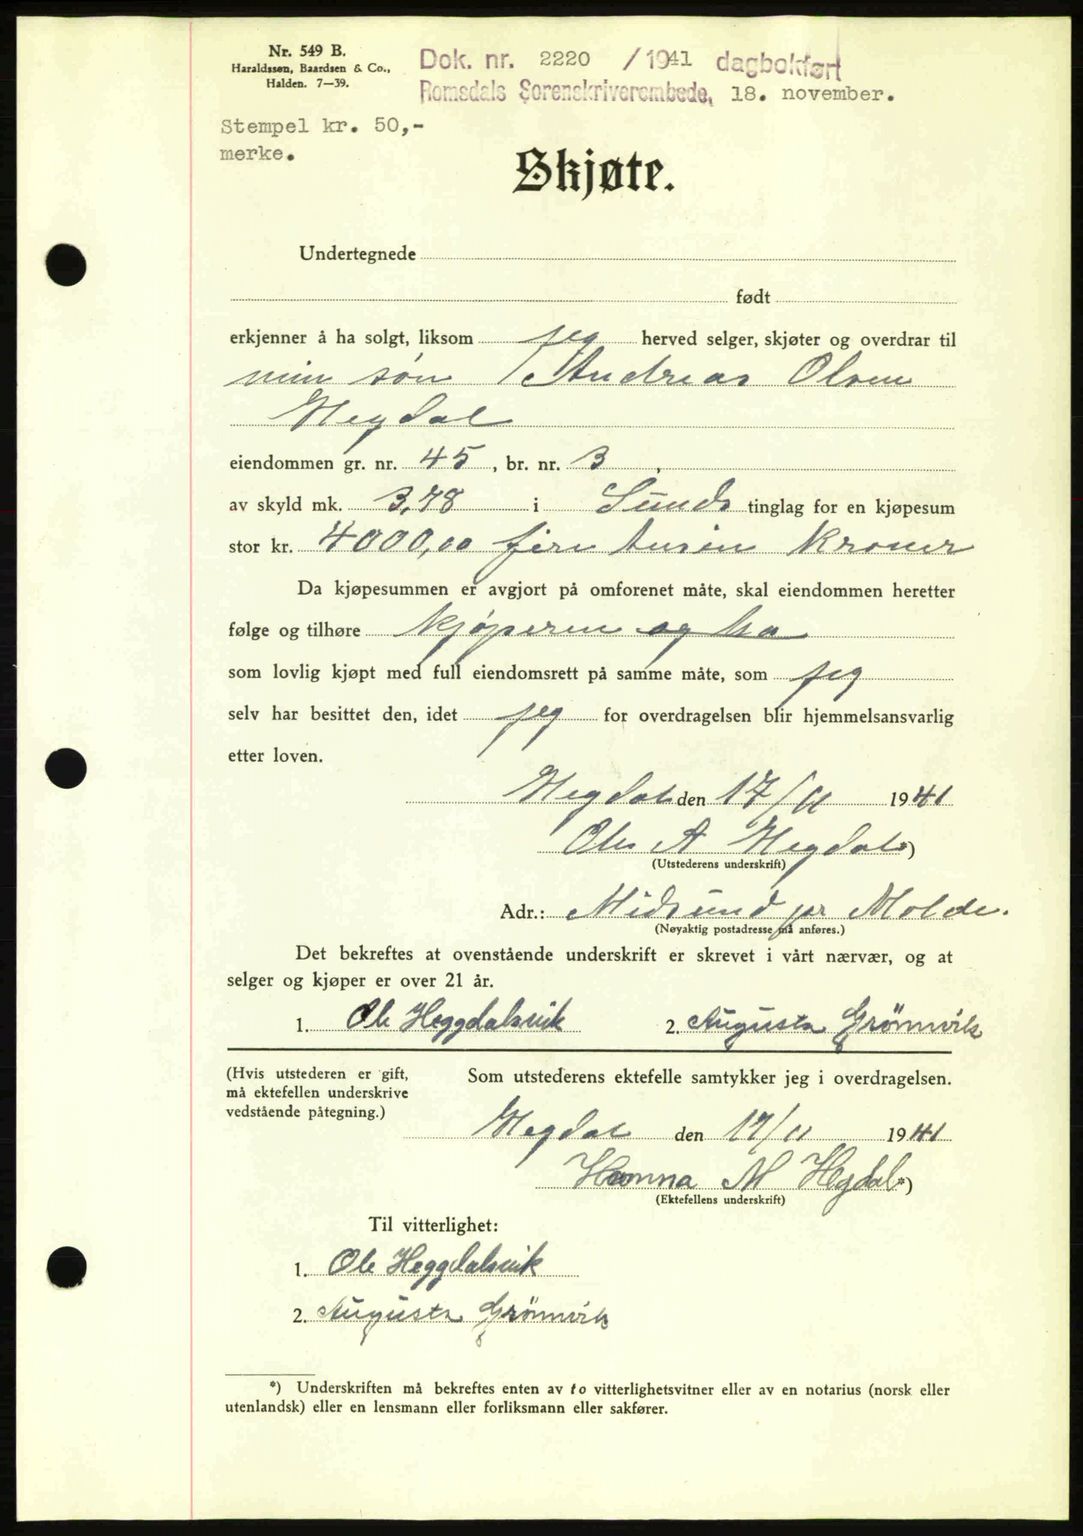 Nr. 549 B.
Haraldssøn, Baardsen & Co.,
Halden. 7—39.
Dok. nr. 2220 /1941 dagbokført
Romsdals Sorenskriverembede, 18. november.
Stempel kr. 50,-
merke.
Skjøte.
Undertegnede
født
erkjenner å ha solgt, liksom jeg herved selger, skjøter og overdrar til
min søn Andreas Olsen
Hegdal
eiendommen gr. nr. 45, br. nr. 3,
av skyld mk. 3,78 i Sunds tinglag for en kjøpesum
stor kr. 4000,00 fire tusin kroner
Da kjøpesummen er avgjort på omforenet måte, skal eiendommen heretter
følge og tilhøre kjøperen og ha
som lovlig kjøpt med full eiendomsrett på samme måte, som jeg
selv har besittet den, idet jeg for overdragelsen blir hjemmelsansvarlig
etter loven.
Hegdal den 17/11 1941
Ole A Hegdal *)
(Utstederens underskrift)
Adr.: Midsund pr Molde.
(Nøyaktig postadresse må anføres.)
Det bekreftes at ovenstående underskrift er skrevet i vårt nærvær, og at
selger og kjøper er over 21 år.
1. Ole Heggdalsvik 2. Augusta Grönnvik
(Hvis utstederen er gift, Som utstederens ektefelle samtykker jeg i overdragelsen.
må ektefellen underskrive
vedstående påtegning.)
Hegdal den 17/11 1941
Hanna M Hegdal *)
(Ektefellens underskrift)
Til vitterlighet:
1. Ole Heggdalsvik
2. Augusta Grönnvik
*) Underskriften må bekreftes enten av to vitterlighetsvitner eller av en notarius (norsk eller
utenlandsk) eller en lensmann eller forliksmann eller sakfører.